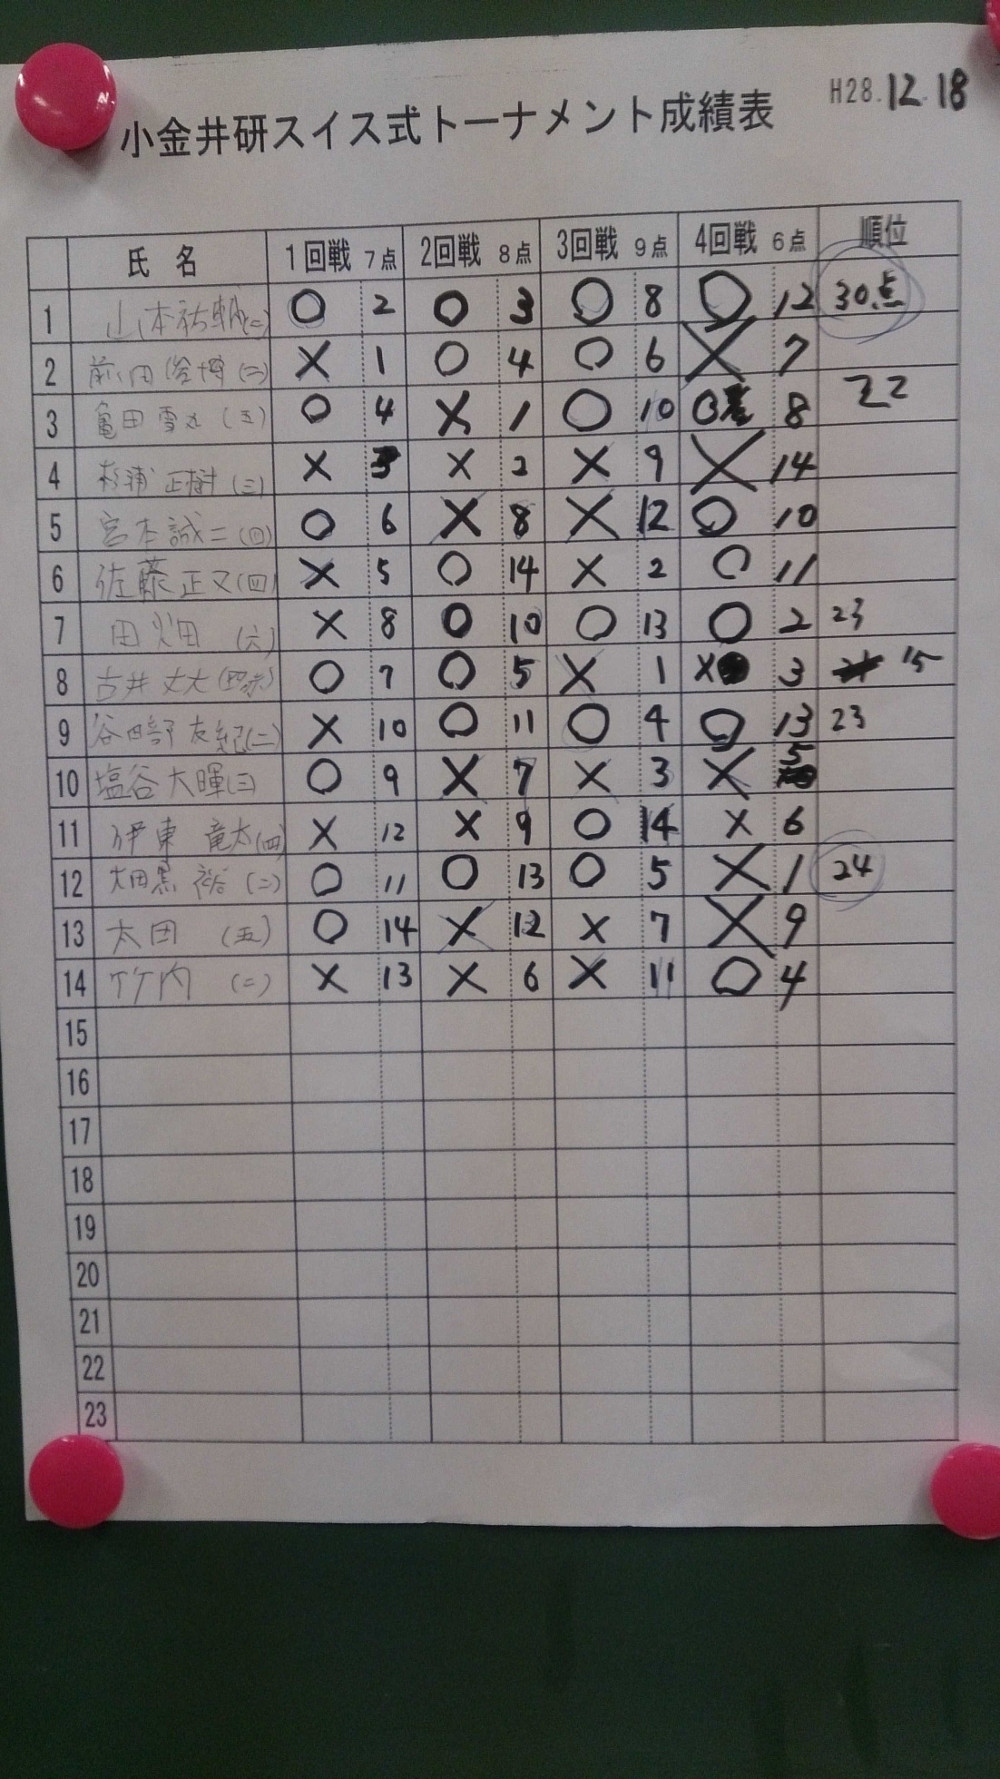 H28.12.18
小金井研スイス式トーナメント成績表
氏 名 1回戦 7点 2回戦 8点 3回戦 9点 4回戦 6点 順位
1 山本祐輔(二) ○ 2 ○ 3 ○ 8 ○ 12 30点
2 前田 (二) × 1 ○ 4 ○ 6 × 7
3 亀田雪丸(五) ○ 4 × 1 ○ 10 ○ 8 22
4 杉浦正樹(三) × 3 × 2 × 9 × 14
5 宮本誠二(四) ○ 6 × 8 × 12 ○ 10
6 佐藤正又(四) × 5 ○ 14 × 2 ○ 11
7 田畑 (六) × 8 ○ 10 ○ 13 ○ 2 23
8 古井丈大 ○ 7 ○ 5 × 1 × 3 15
9 谷田部友紀(二) × 10 ○ 11 ○ 4 ○ 13 23
10 塩谷大暉(三) ○ 9 × 7 × 3 × 5
11 伊東竜太(四) × 12 × 9 ○ 14 × 6
12 大田黒裕(二) ○ 11 ○ 13 ○ 5 × 1 24
13 太田 (五) ○ 14 × 12 × 7 × 9
14 竹内 (二) × 13 × 6 × 11 ○ 4
15
16
17
18
19
20
21
22
23